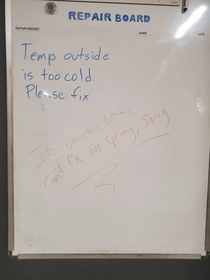 REPAIR BOARD
REPAIR NEEDED NAME DATE
Temp outside
is too cold.
Please fix
It's winter time,
can't fix till spring, Sorry